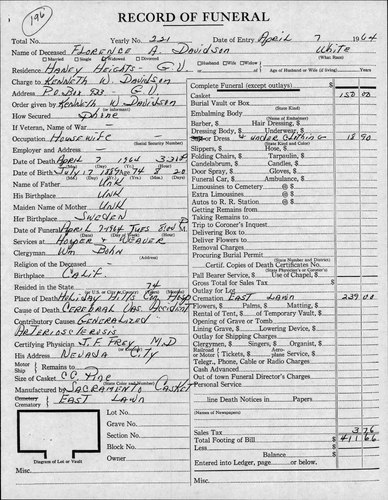 196
RECORD OF FUNERAL
Total No. Yearly No. 221 Date of Entry April 7 1964
Name of Deceased Florence A. Davidson White
Married Single Widowed Divorced Husband Wife Widow (What Race)
Residence Haney Heights - G.V. Age of Husband or Wife (if living) Years
Charge to Kenneth W. Davidson
Address P.O. Box 933 - G.V.
Order given by Kenneth W. Davidson
How Secured Phone
If Veteran, Name of War
Occupation Housewife
(Social Security Number)
Employer and Address
Date of Death April 7 1964
Date of Birth July 17 1889 Age 74 8 20
Name of Father Unk
His Birthplace Unk
Maiden Name of Mother Unk
Her Birthplace Sweden
Date of Funeral April 9-1964 Tues
Services at Hooper & Weaver
Clergyman Wm Bohn
Religion of the Deceased
Birthplace Calif
Resided in the State 74
Place of Death Holiday Hills Con Hosp
Cause of Death Cerebral Vas Accident
Contributory Causes Generalized
Arteriosclerosis
Certifying Physician J.F. Frey M.D
His Address Nevada City
Motor
Ship Remains to
Size of Casket CC Pine
(State Color and Number)
Manufactured by Sacramento Casket
Cemetery
Crematory East Lawn
Lot No.
Grave No.
Section No.
Block No.
Owner
Diagram of Lot or Vault
Misc.
Complete Funeral (except outlays) $
Casket 150 00
Burial Vault or Box
(State Kind)
Embalming Body
(Name of Embalmer)
Barber, $ Hair Dressing, $
Dressing Body, $ Underwear, $
Suit or Dress & under clothing 18 90
(State Kind and Color)
Slippers, $ Hose, $
Folding Chairs, $ Tarpaulin, $
Candelabrum, $ Candles, $
Door Spray, $ Gloves, $
Funeral Car, $ Ambulance, $
Limousines to Cemetery @ $
Extra Limousines @ $
Autos to R. R. Station @ $
Getting Remains from
Taking Remains to
Trip to Coroner's Inquest
Delivering Box to
Deliver Flowers to
Removal Charges
Procuring Burial Permit
(State Number and District)
Certif. Copies of Death Certificates No.
(State Physician's or Coroner's)
Pall Bearer Service, $ Use of Chapel, $
Gross Total for Sales Tax $
Outlay for Lot
Cremation East Lawn 239 00
Flowers, $ Palms, $ Matting, $
Rental of Tent, $ of Temporary Vault, $
Opening of Grave or Tomb
Lining Grave, $ Lowering Device, $
Outlay for Shipping Charges
Clergymen, $ Singers, $ Organist, $
Railroad
or Motor Tickets, $ Aero-
plane Service, $
Telegr., Phone, Cable or Radio Charges
Cash Advanced
Out of town Funeral Director's Charges
Personal Service
line Death Notices in Papers
(Names of Newspapers)
Sales Tax 3 76
Total Footing of Bill $ 411 66
Less
Balance $
Entered into Ledger, page or below.
Misc.